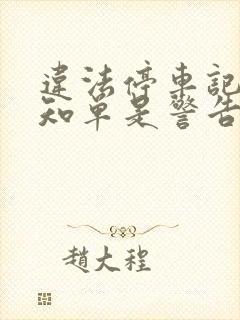 違法停車記
知單是警告
趙大程